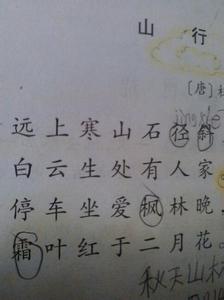 山行
[唐]
远上寒山石径斜
白云生处有人家
停车坐爱枫林晚，
霜叶红于二月花。
秋天山林